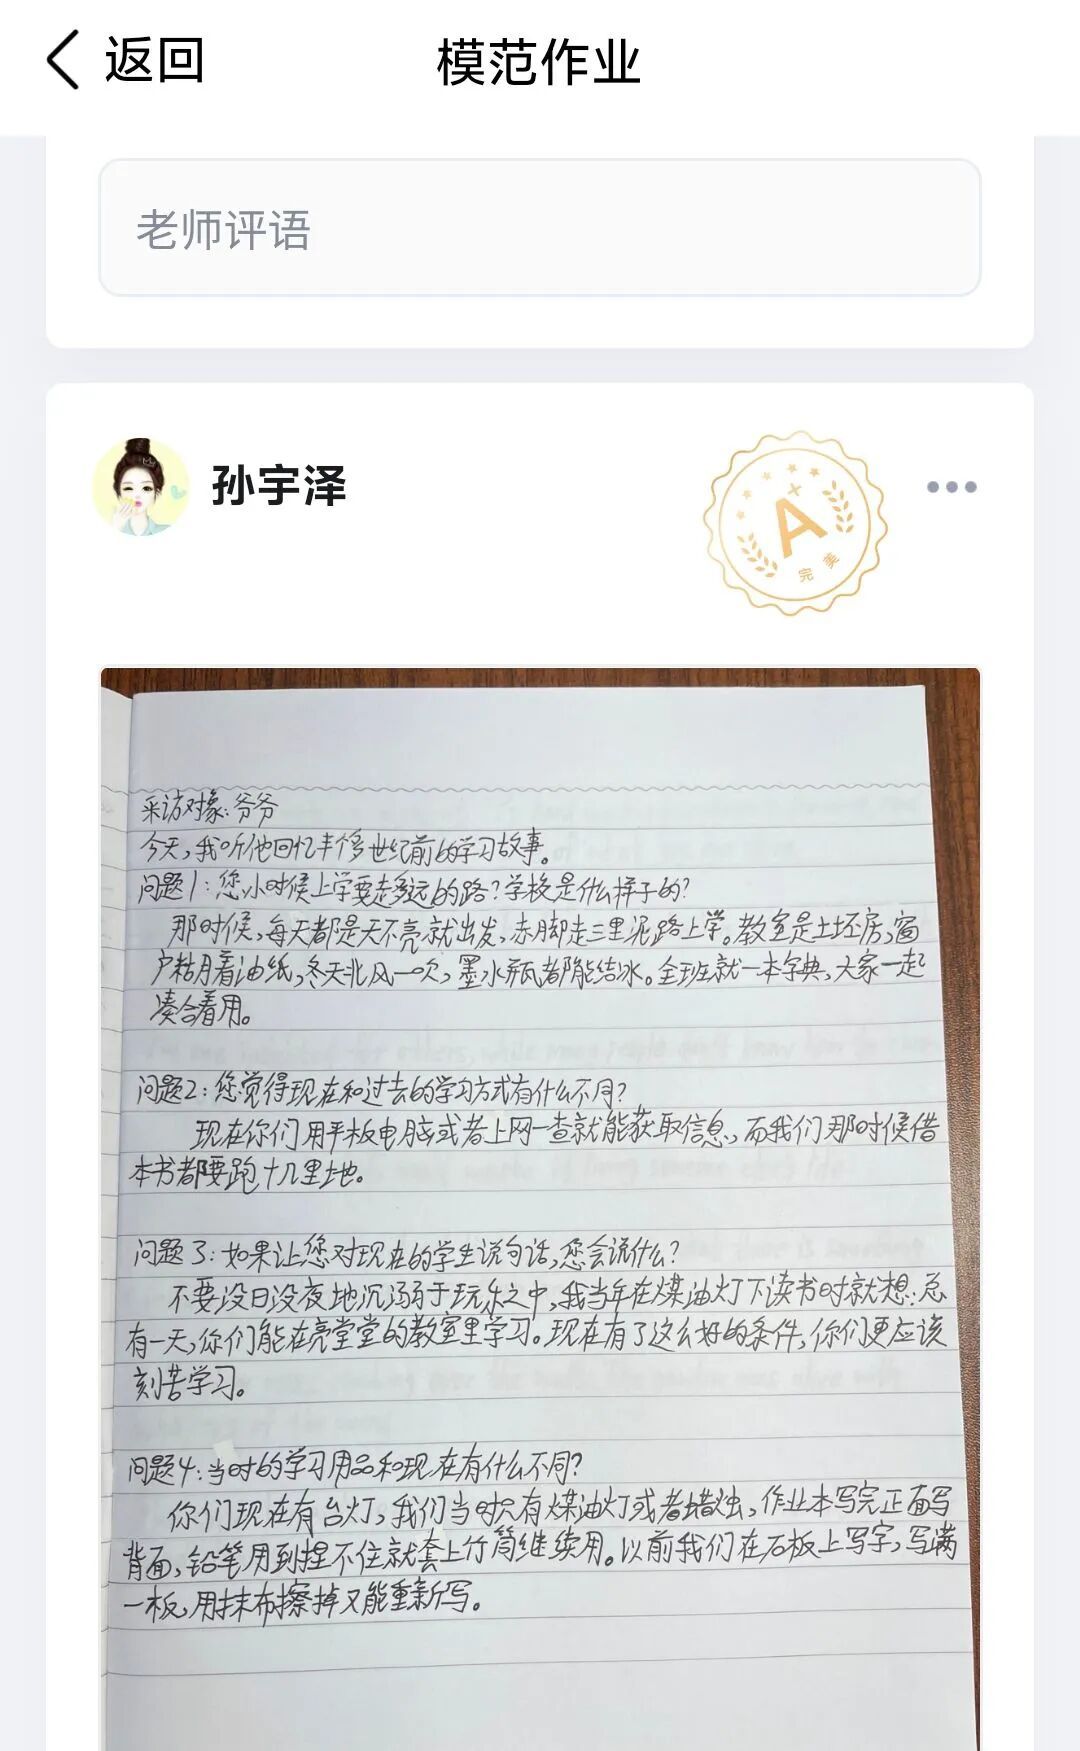 返回
模范作业
老师评语
孙宇泽
A+
完美
采访对象:爷爷
今天,我听他回忆半个多世纪前的学习故事。
问题1:您小时候上学要走多远的路?学校是什么样子的?
那时候,每天都是天不亮就出发,赤脚走三里泥路上学。教室是土坯房,窗
户粘着油纸,冬天北风一吹,墨水瓶都能结冰。全班就一本字典,大家一起
凑合着用。
问题2:您觉得现在和过去的学习方式有什么不同?
现在你们用平板电脑或者上网一查就能获取信息,而我们那时候借
本书都要跑十几里地。
问题3:如果让您对现在的学生说句话,您会说什么?
不要没日没夜地沉溺于玩乐之中,我当年在煤油灯下读书时就想:总
有一天,你们能在亮堂堂的教室里学习。现在有了这么好的条件,你们更应该
刻苦学习。
问题4:当时的学习用品和现在有什么不同?
你们现在有台灯,我们当时只有煤油灯或者蜡烛,作业本写完正面写
背面,铅笔用到捏不住就套上竹筒继续用。以前我们在石板上写字,写满
一板,用抹布擦掉又能重新写。